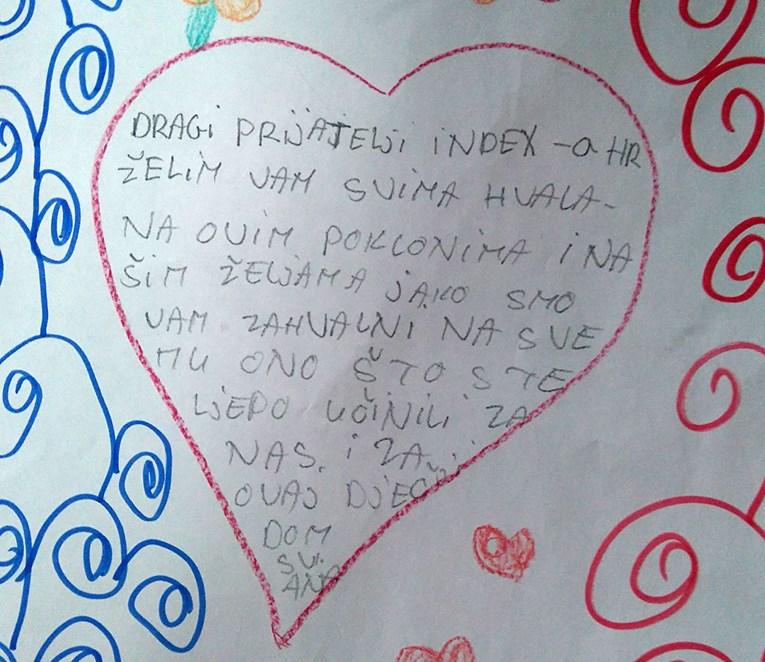 DRAGI PRIJATELJI INDEX -a HR
ŽELIM VAM SVIMA HVALA-
NA OVIM POKLONIMA I NA
ŠIM ŽELJAMA JAKO SMO
VAM ZAHVALNI NA SVE
MU ONO ŠTO STE
LJEPO UČINILI ZA
NAS. I ZA
OVAJ DJEČJI
DOM
SV.
ANA